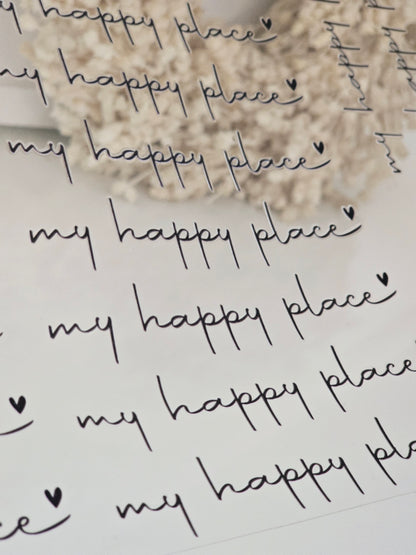 my happy place
my happy place
my happy place
my happy place
my happy place
my happy place
my happy
happy
happy
my